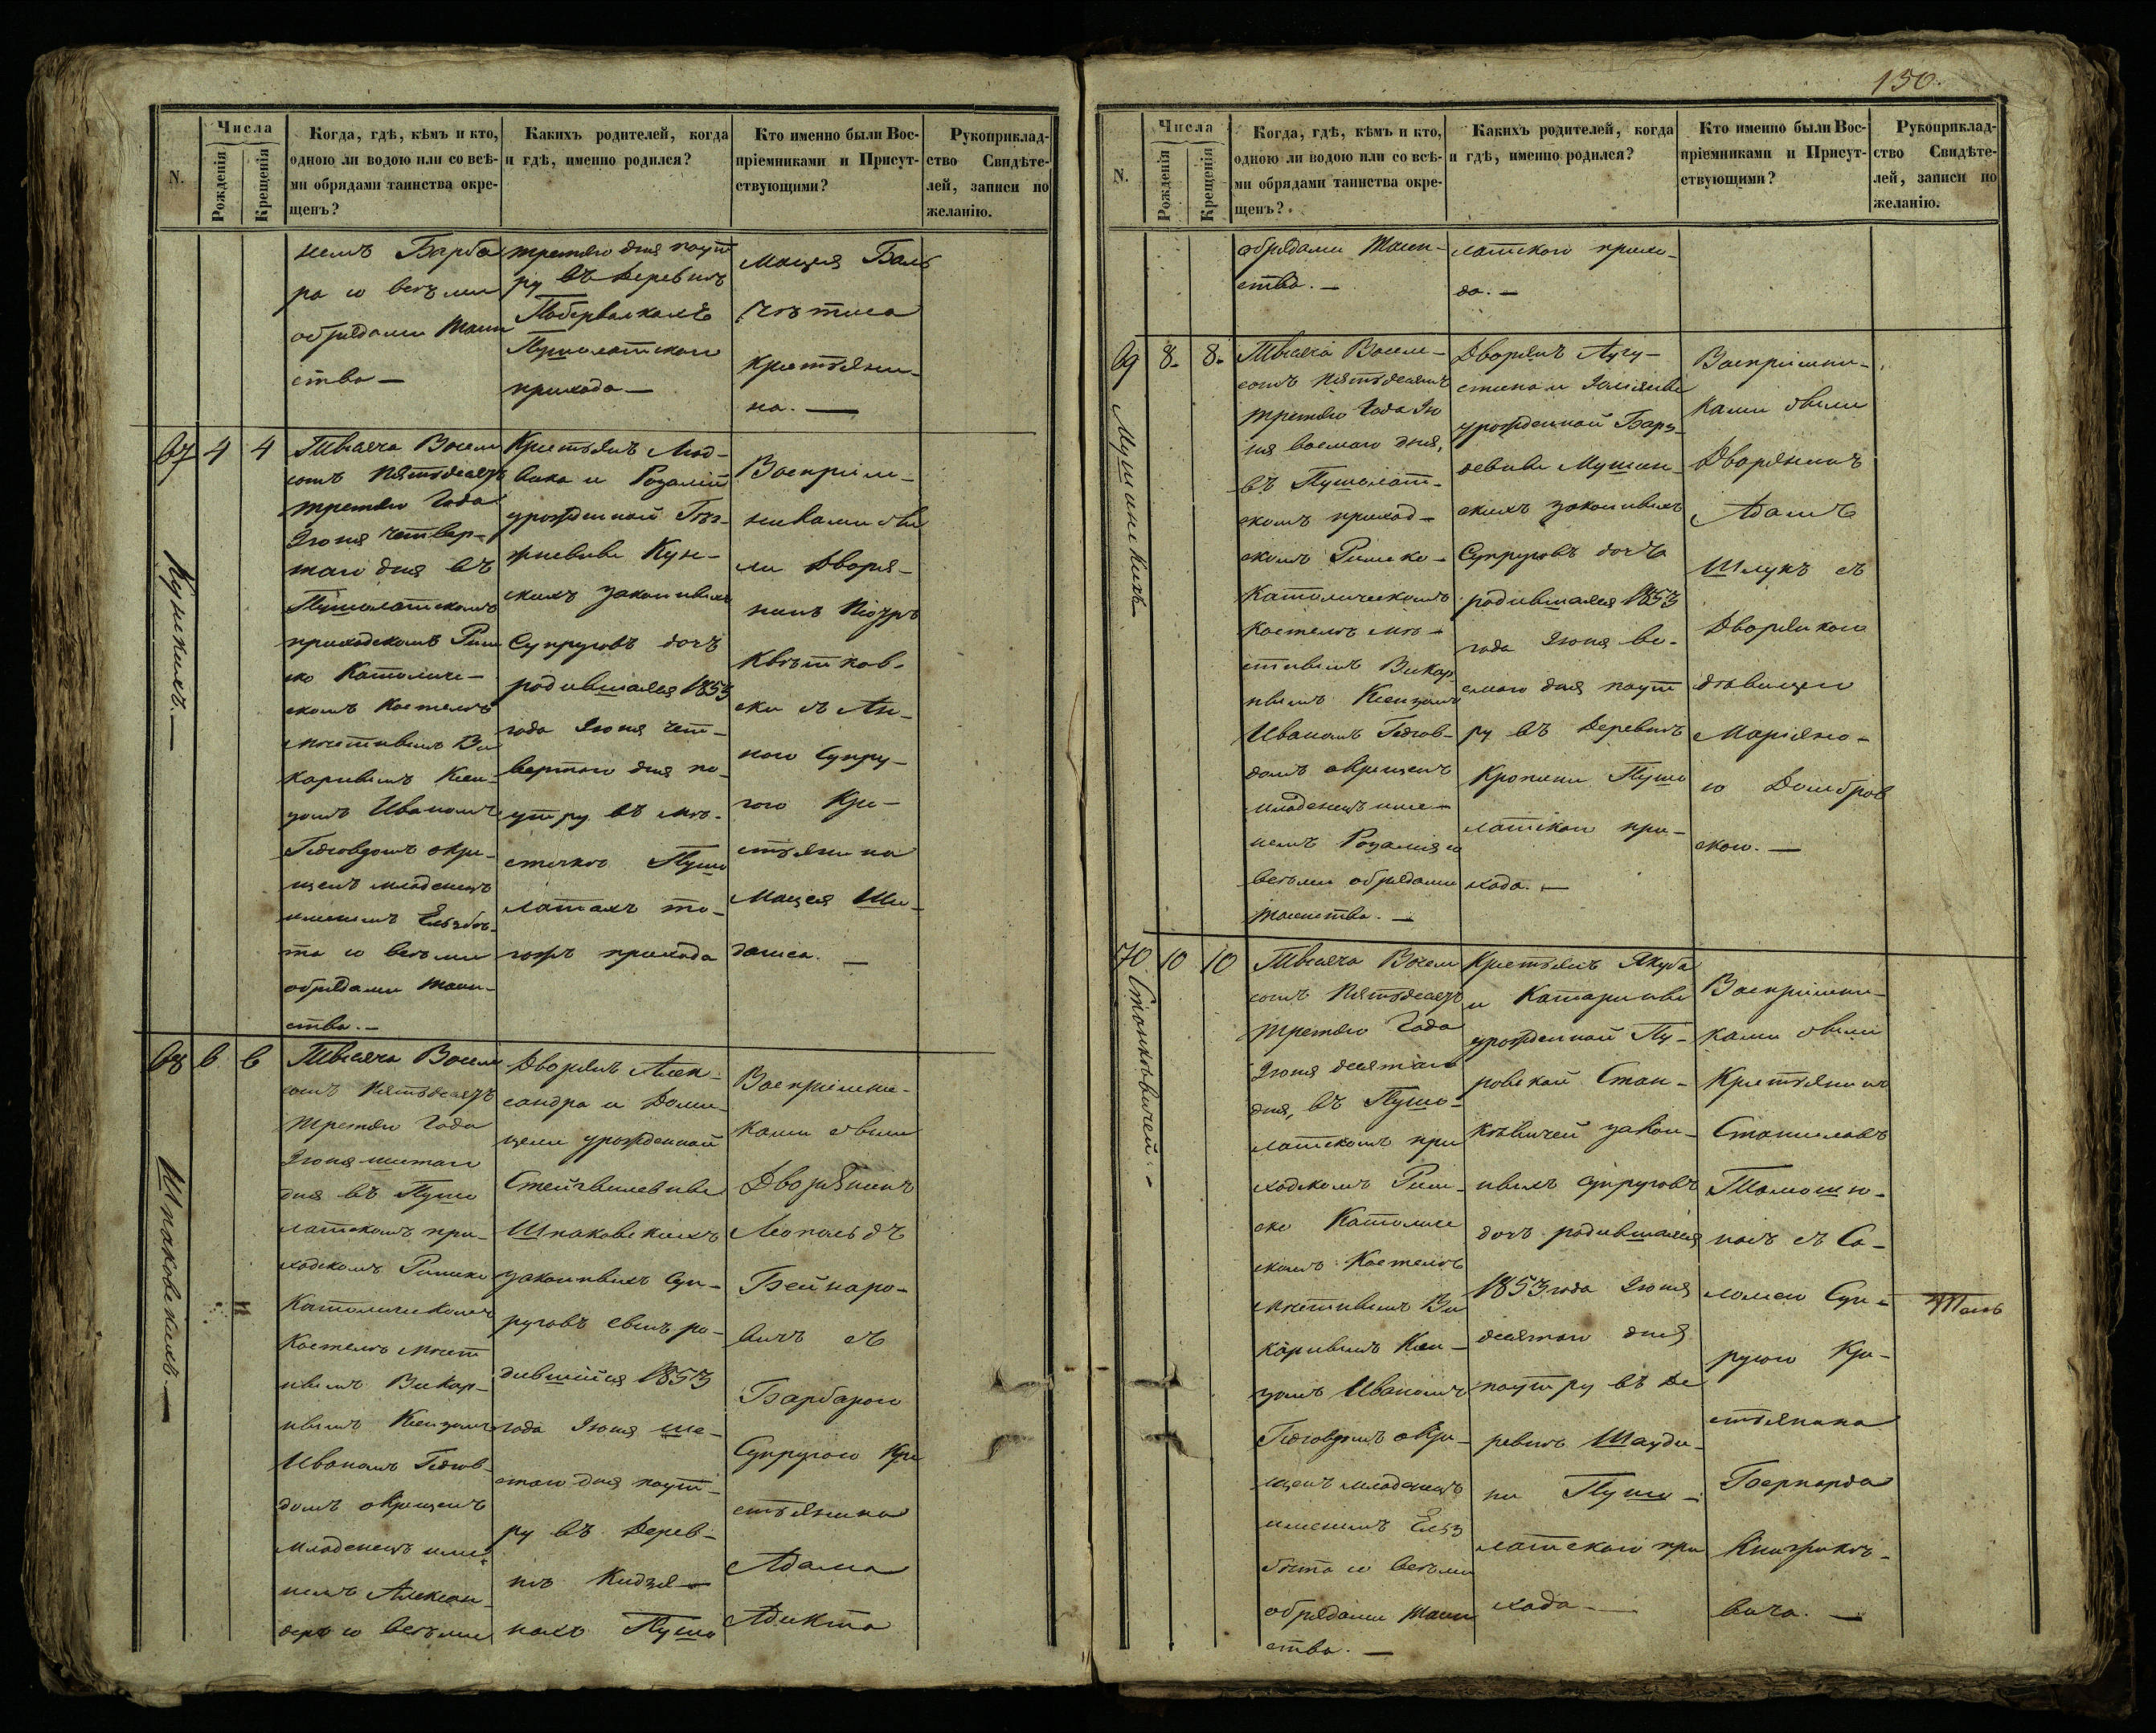 150.
N.
Числа
Рожденія
Крещенія
Когда, гдѣ, кѣмъ и кто,
одною ли водою или со всѣ-
ми обрядами таинства окре-
щенъ?
Какихъ родителей, когда
и гдѣ, именно родился?
Кто именно были Вос-
пріемниками и Присут-
ствующими?
Рукоприклад-
ство Свидѣте-
лей, записи по
желанію.
немъ Барба
ра со всѣми
обрядами таин
ства —
третьяго дня поут
ру въ деревнѣ
Пушолатскаго
прихода —
Мацея Баль
читиса
крестьяни-
на. —
67
4
4
Кунскихъ. —
Тысяча Восем
сотъ пятьдесятъ
третьяго Года
Іюня четвер-
таго дня въ
Пушолатскомъ
приходскомъ Рим
ско Католиче-
скомъ Костелѣ
мѣстнымъ Ви
карнымъ Ксен-
дзомъ Иваномъ
окре-
щенъ младенецъ
именемъ Ельзбѣ-
та со всѣми
обрядами таин-
ства. —
Крестьянъ Люд-
вика и Розаліи
урожденной
Кун-
скихъ законныхъ
Супруговъ дочь
родившаяся 1853
года Іюня чет-
вертаго дня по-
утру въ мѣ-
стечкѣ Пушо
латахъ то-
гожъ прихода
Воспріем-
никами бы
ли Дворя-
нинъ Піотръ
Квѣтков-
ски съ Ан-
ною Супру-
гою Кре-
стьянина
Мацея Ши-
68
6
6
Шпаковскихъ. —
Тысяча Восем
сотъ пятьдесятъ
третьяго Года
Іюня шестаго
дня въ Пушо
латскомъ при-
ходскомъ Римско
Католическомъ
Костелѣ мѣст
нымъ Викар-
нымъ Ксендзомъ
Иваномъ
домъ окрещенъ
младенецъ име-
немъ Александ-
деръ со всѣми
Дворянъ Алек-
сандра и Доми-
цели урожденной
Шпаковскихъ
законныхъ Суп-
руговъ сынъ ро-
дившійся 1853
года Іюня ше-
стаго дня поут-
ру въ дерев-
нѣ
нахъ Пушо
Воспріемни-
ками были
Дворянинъ
Леопольдъ
Бейнаро-
вичъ съ
Барбарою
Супругою Кре
стьянина
Адама
Адикта
N.
Числа
Рожденія
Крещенія
Когда, гдѣ, кѣмъ и кто,
одною ли водою или со всѣ-
ми обрядами таинства окре-
щенъ?
Какихъ родителей, когда
и гдѣ, именно родился?
Кто именно были Вос-
пріемниками и Присут-
ствующими?
Рукоприклад-
ство Свидѣте-
лей, записи по
желанію.
обрядами таин-
ства. —
латскаго прихо-
да. —
69
8.
8.
Мушинскихъ
Тысяча Восем-
сотъ пятьдесятъ
третьяго Года Ію
ня восмаго дня,
въ Пушолат-
скомъ приход-
скомъ Римско-
Католическомъ
Костелѣ мѣ-
стнымъ Викар
нымъ Ксендзомъ
Иваномъ
домъ окрещенъ
младенецъ име-
немъ Розалія со
всѣми обрядами
таинства. —
Дворянъ Авгу-
стина и
урожденной
Мушин-
скихъ законныхъ
Супруговъ дочь
родившаяся 1853
года Іюня во-
смаго дня поут
ру въ деревнѣ
Пушо
латскаго при-
хода. —
Воспріемни-
ками были
Дворянинъ
Адамъ
Шлукъ съ
Дворянкою
дѣвицею
Маріянно-
ю Домбров
скою. —
70
10
10
Станкѣвичей. —
Тысяча Восем
сотъ пятьдесятъ
третьяго Года
Іюня десятаго
дня, въ Пушо-
латскомъ при
ходскомъ Рим-
ско Католиче
скомъ Костелѣ
мѣстнымъ Ви
карнымъ Ксен-
дзомъ Иваномъ
окре-
щенъ младенецъ
именемъ Ельз
бѣта со всѣми
обрядами таин
ства. —
Крестьянъ Якуба
и Катарины
урожденной Пу-
ровской Стан-
кѣвичей закон-
ныхъ Супруговъ
дочь родившаяся
1853 года Іюня
десятаго дня
поутру въ де
ревнѣ
Пушо-
латскаго при
хода —
Воспріемни-
ками были
Крестьянинъ
Станиславъ
съ Са-
ломеею Суп-
ругою Кре-
стьянина
Бернарда
вича. —